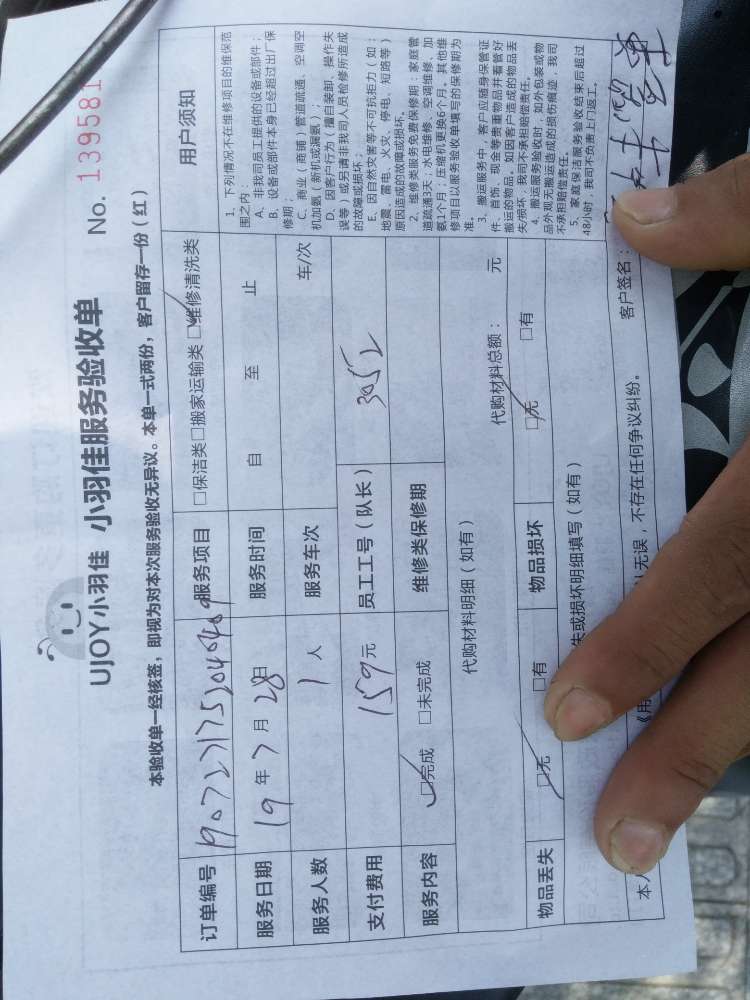 UJOY小羽佳 小羽佳服务验收单
No. 139581
本验收单一经核签，即视为对本次服务验收无异议。本单一式两份，客户留存一份（红）
订单编号 1907231752040409 服务项目 □保洁类□搬家运输类□维修清洗类
服务日期 19年7月28日 服务时间 自 至 止
服务人数 1人 服务车次 车/次
支付费用 159元 员工工号（队长） 3052
服务内容 □完成 □未完成 维修类保修期
代购材料明细（如有） 代购材料总额： 元
物品丢失 □无 □有 物品损坏 □无 □有
失或损坏明细填写（如有）
用户须知
1、下列情况不在维修项目的维保范
围之内：
A、非我司员工提供的设备或部件；
B、设备或部件本身已经超过出厂保
修期；
C、商业（商铺）管道疏通、空调空
机加氨（新机或漏氨）；
D、因客户行为（擅自装卸、操作失
误等）或另请非我司人员检修所造成
的故障或损坏；
E、因自然灾害等不可抗拒力（如：
地震、雷电、火灾、停电、短路等）
原因造成的故障或损坏。
2、维修类服务免费保修期：家庭管
道疏通3天；水电维修、空调维修、加
氨1个月；压缩机更换6个月，其他维
修项目以服务验收单填写的保修期为
准。
3、搬运服务中，客户应随身保管证
件、首饰、现金等贵重物品并看管好
搬运的物品。如因客户造成的物品丢
失/损坏，我司不承担赔偿责任。
4、搬运服务验收时，如外包装或物
品外观无搬运造成的损伤痕迹，我司
不承担赔偿责任。
5、家庭保洁服务验收结束后超过
48小时，我司不负责上门返工。
本人
《用
无误，不存在任何争议纠纷。
客户签名：